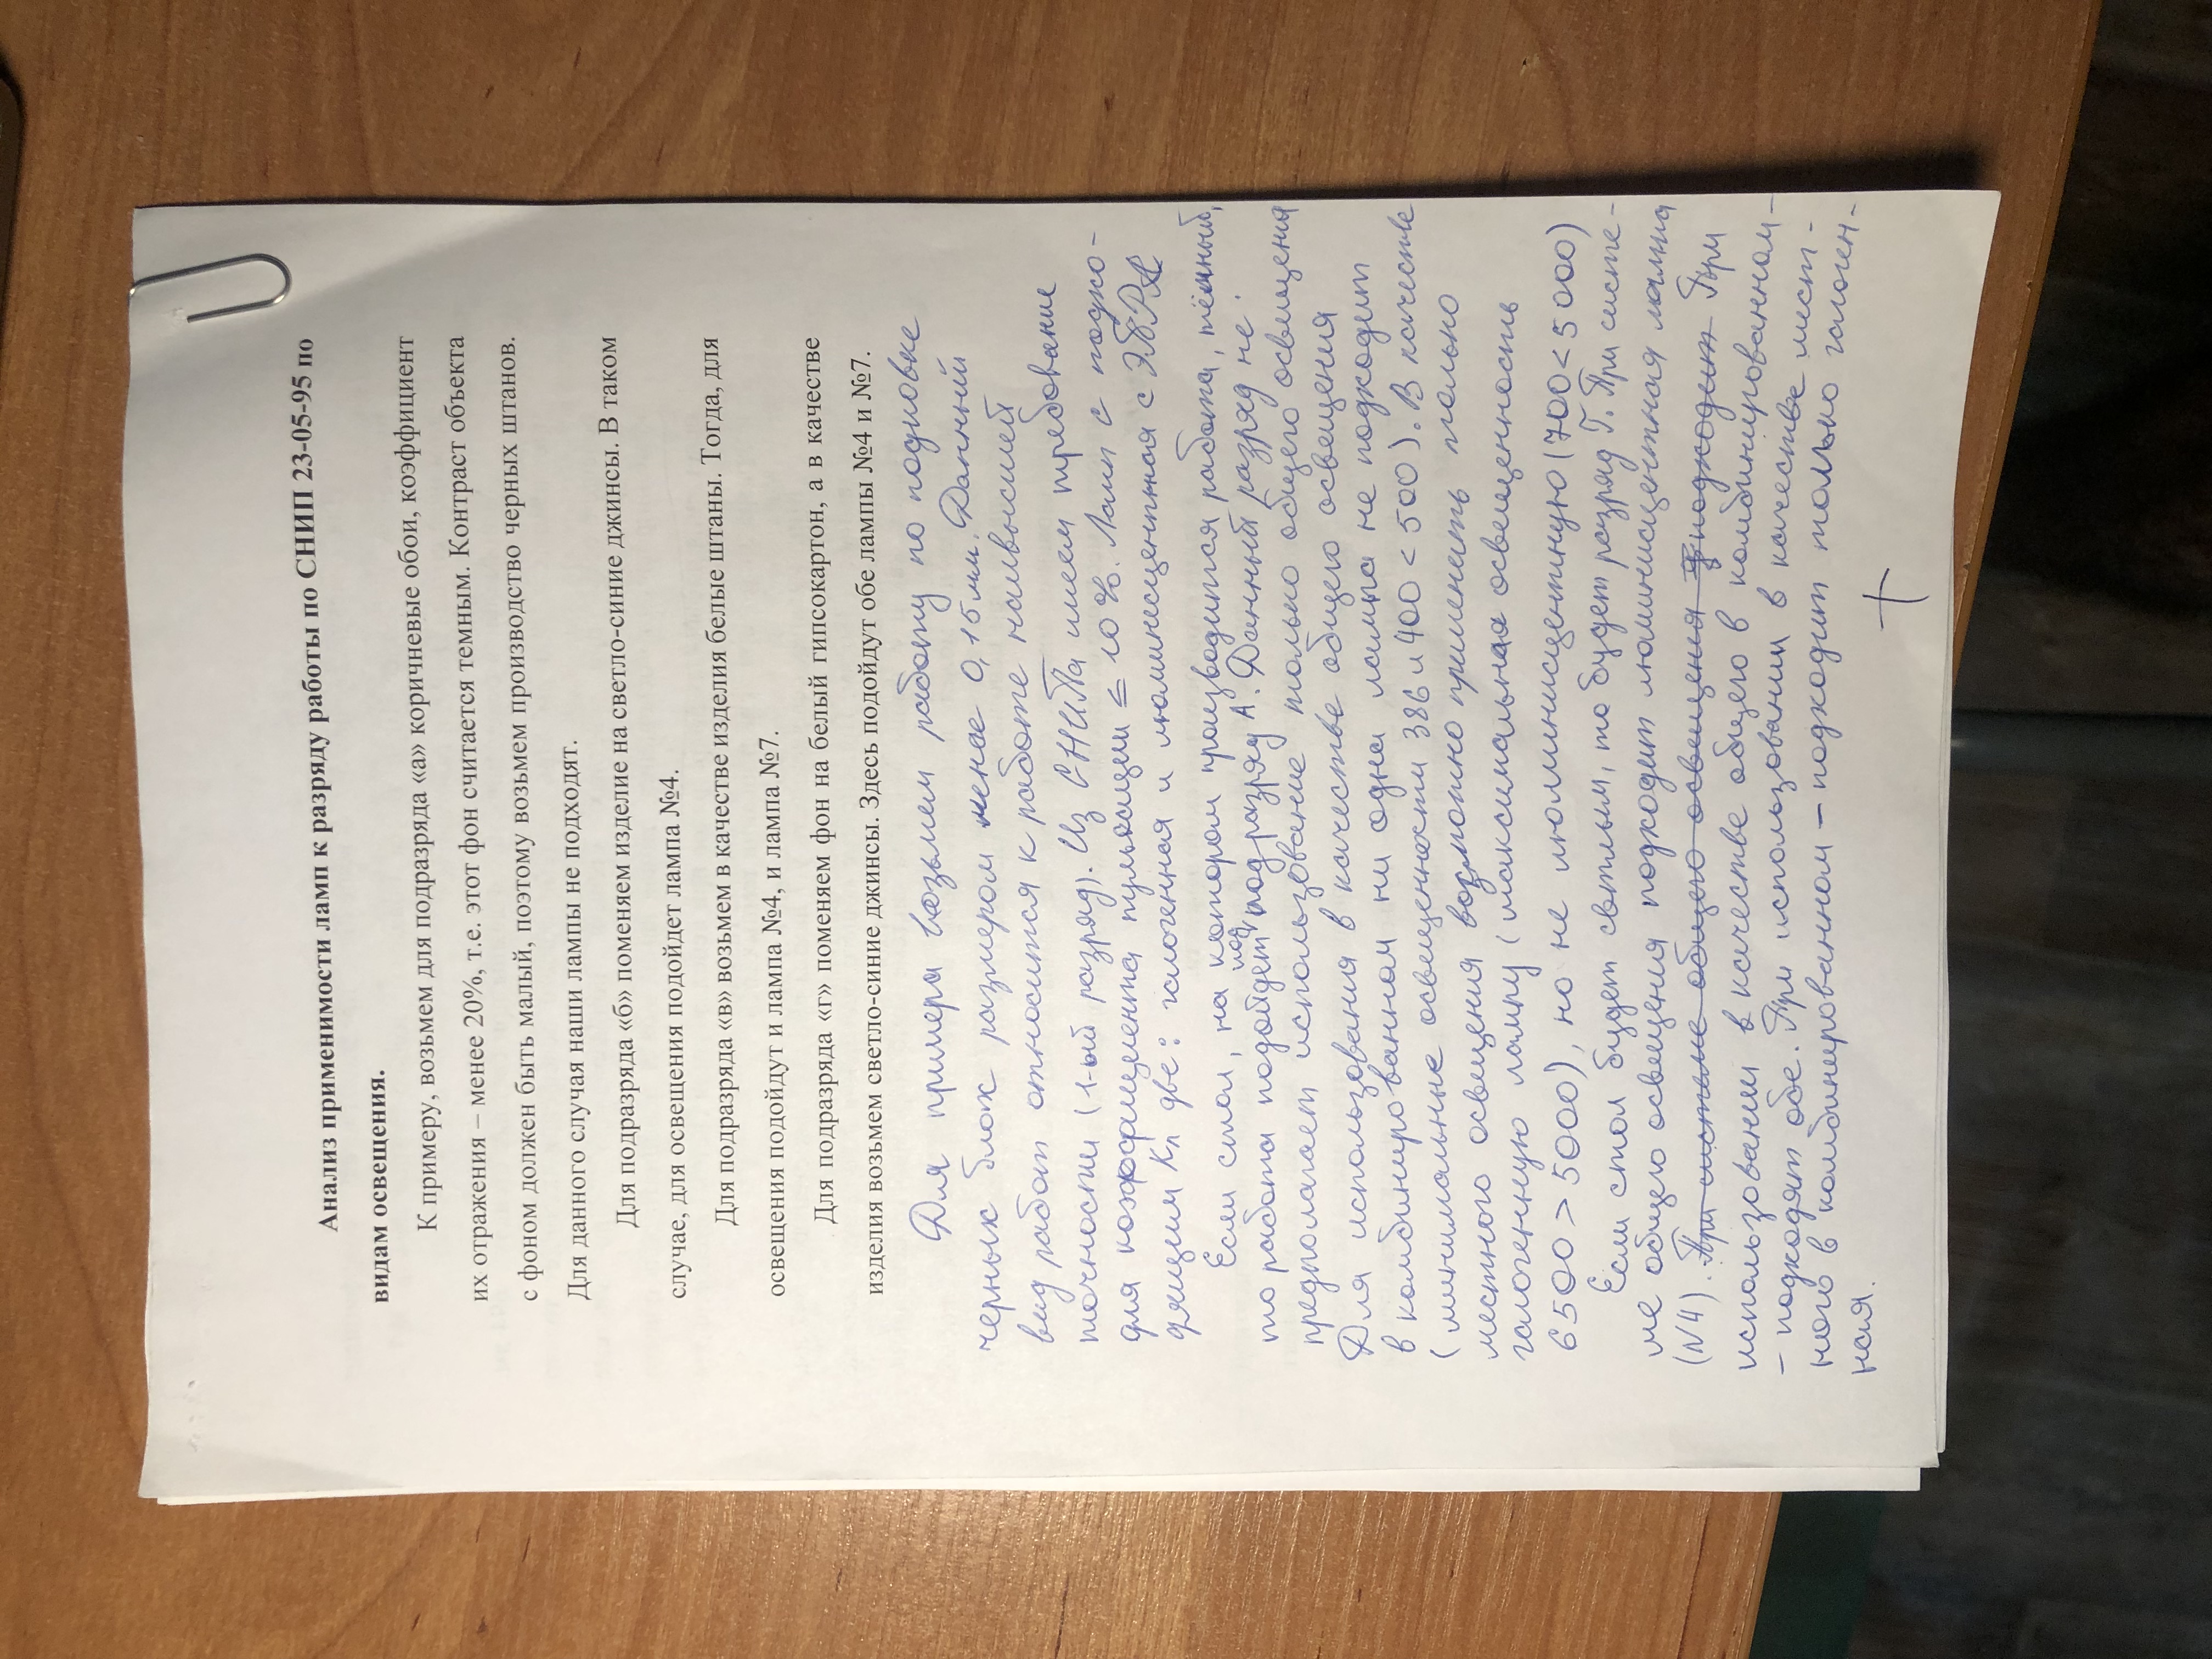 Анализ применимости ламп к разряду работы по СНИП 23-05-95 по
видам освещения.
К примеру, возьмем для подразряда «а» коричневые обои, коэффициент
их отражения – менее 20%, т.е. этот фон считается темным. Контраст объекта
с фоном должен быть малый, поэтому возьмем производство черных штанов.
Для данного случая наши лампы не подходят.
Для подразряда «б» поменяем изделие на светло-синие джинсы. В таком
случае, для освещения подойдет лампа №4.
Для подразряда «в» возьмем в качестве изделия белые штаны. Тогда, для
освещения подойдут и лампа №4, и лампа №7.
Для подразряда «г» поменяем фон на белый гипсокартон, а в качестве
изделия возьмем светло-синие джинсы. Здесь подойдут обе лампы №4 и №7.
Для примера возьмем работу по подковке
черных блох размером менее 0,15 мм. Данный
вид работ относится к работе наивысшей
точности (1-ый разряд). Из СНИПа имеем требование
для коэффициента пульсации ≤ 10%. Ламп с подхо-
дящим Кп две: галогенная и люминисцентная с ЭПРА
Если стол, на котором производится работа, тёмный,
то работа подойдет под подразряд А. Данный разряд не
предполагает использование только общего освещения
Для использования в качестве общего освещения
в комбинированном ни одна лампа не подходит
(минимальные освещенности 386 и 400 < 500). В качестве
местного освещения возможно применить только
галогенную лампу (максимальная освещенность
6500 > 5000), но не люминисцентную (700 < 5000)
Если стол будет светлым, то будет разряд Г. При систе-
ме общего освещения подходит люминисцентная лампа
(N4). При системе общего освещения подходит При
использовании в качестве общего в комбинированном –
– подходят обе. При использовании в качестве мест-
ного в комбинированном – подходит только галоген-
ная.